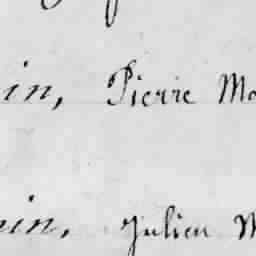 in, Pierre Ma
in, Julien M